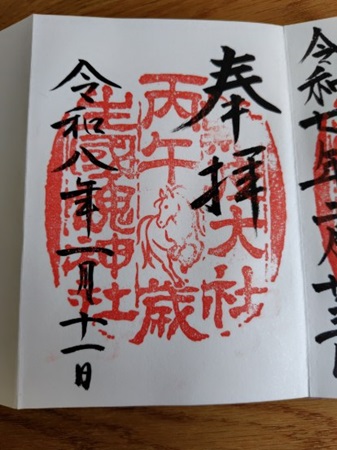 令和七年
奉拝
大社
丙午歳
生國魂神社
令和八年一月十一日